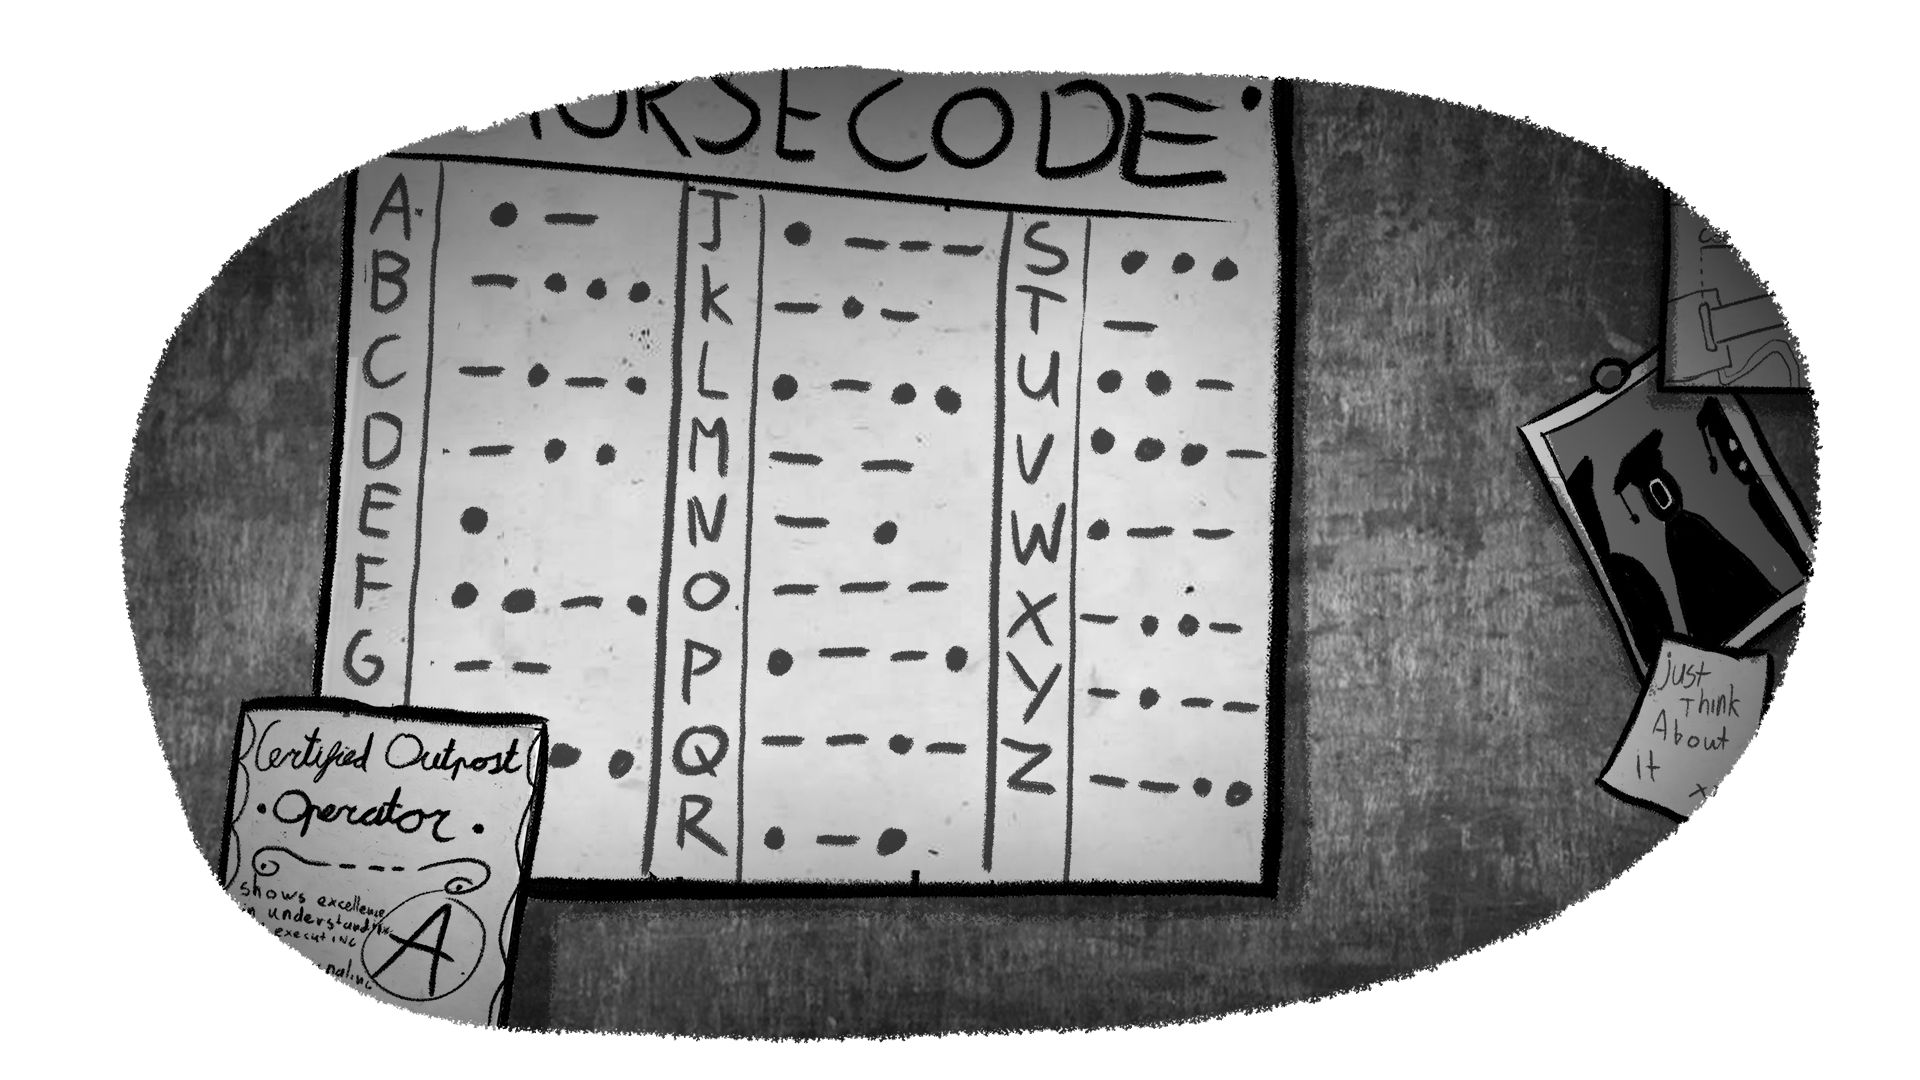 MORSE CODE
A • — J • — — — S • • •
B — • • • K — • — T —
C — • — • L • — • • U • • —
D — • • M — — V • • • —
E • N — • W • — —
F • • — • O — — — X — • • —
G — — P • — — • Y — • — —
• • Q — — • — Z — — • •
R • — •
Certified Outpost
• Operator •
shows excellence
in understanding
executing
A
just
Think
About
it
x